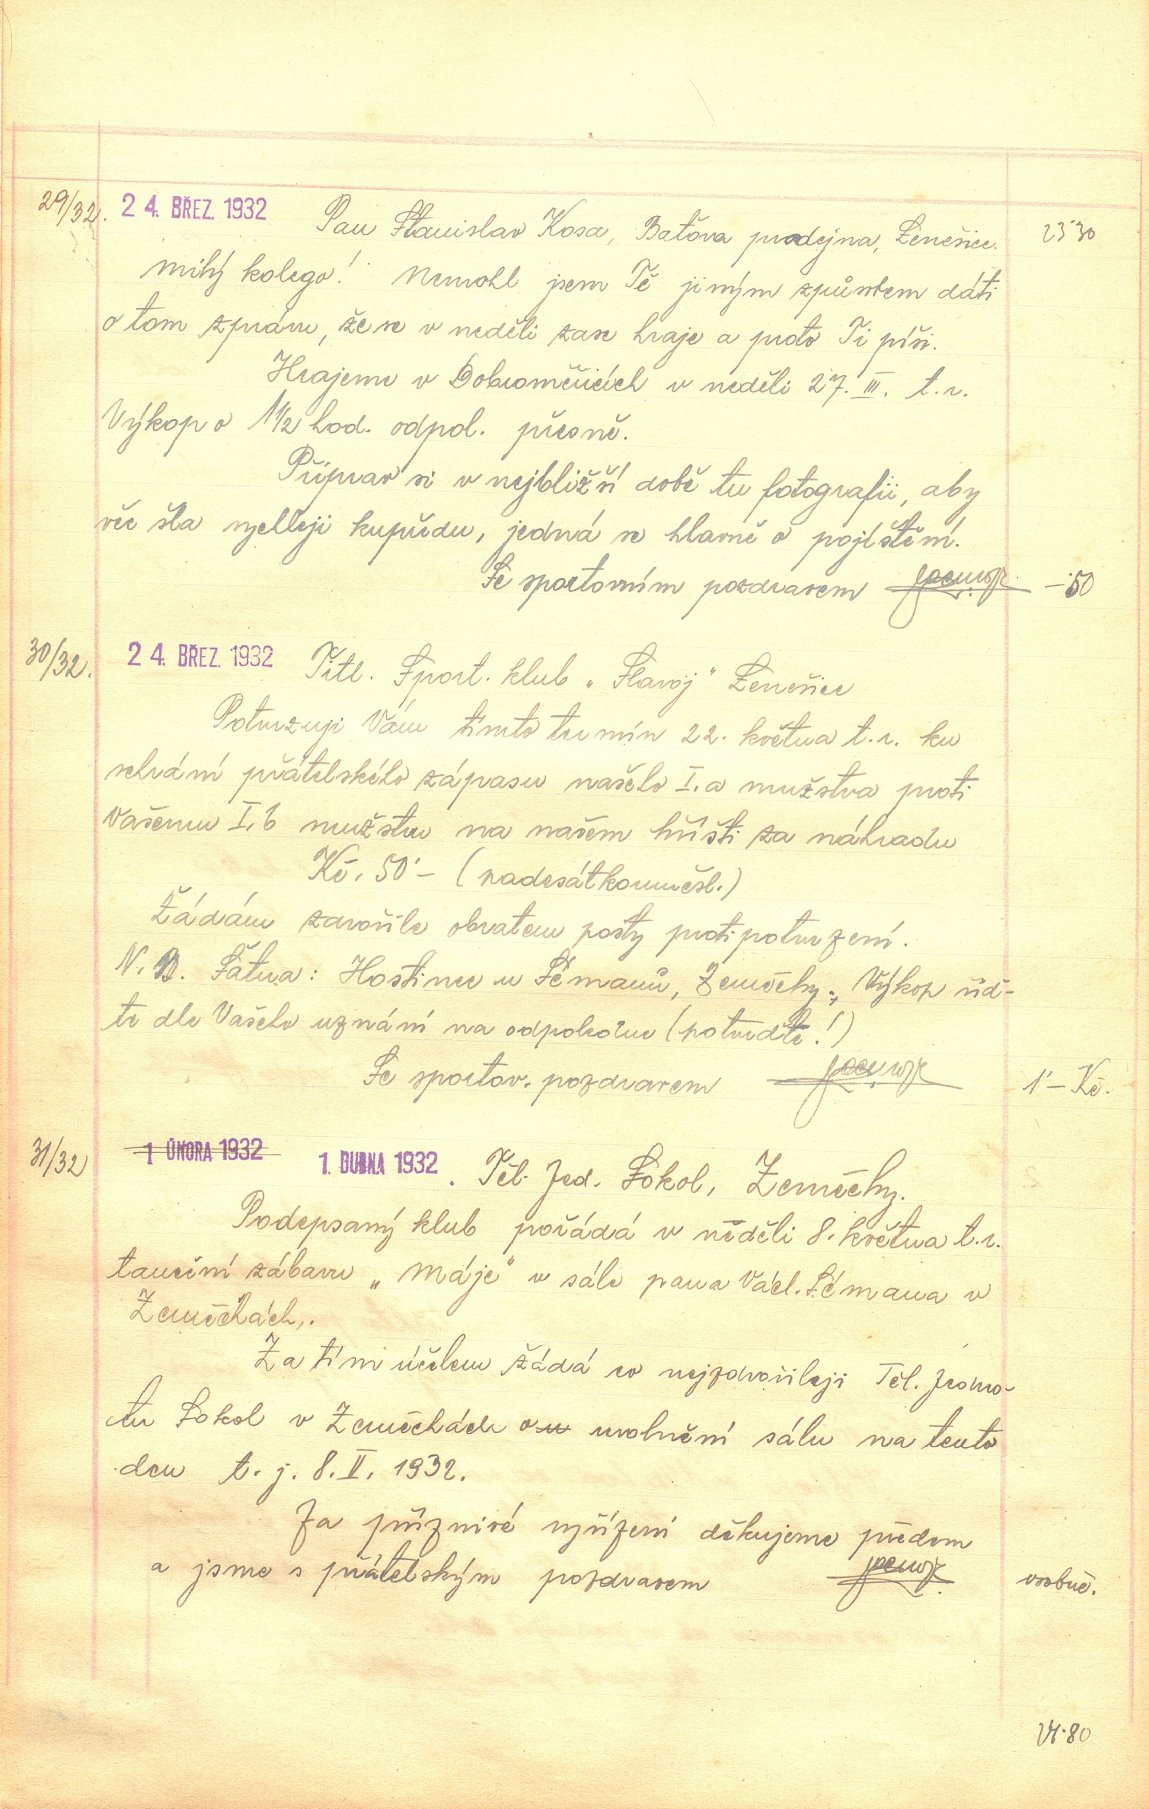 29/32. 24. BŘEZ. 1932 Pan Stanislav Kosa, Baťova prodejna, Ženešice. 23·30
milý kolego! Nemohl jsem Tě jiným způsobem dáti
o tom zprávu, že se v neděli zase hraje a proto Ti píši.
Hrajeme v Dobroměřicích v neděli 27. III. t. r.
Výkop o 1 1/2 hod. odpol. přesně.
Připrav si v nejbližší době tu fotografii, aby
věc šla rychleji kupředu, jedná se hlavně o pojištění.
Se sportovním pozdravem -·50
30/32. 24. BŘEZ. 1932 Titl. Sport. klub „Slavoj" Ženešice
Potvrzuji Vám tímto termín 22. května t. r. ku
sehrání přátelského zápasu našeho I. a mužstva proti
Vašemu I. b mužstvu na našem hřišti za náhradu
Kč. 50·- (padesátkorunčsl.)
Žádám zdvořile obratem pošty protipotvrzení.
N. B. Šatna: Hostinec u Sémanů, Zeměchy., Výkop uď-
te dle Vašeho uznání na odpoledne (potvrďte!)
Se sportov. pozdravem 1·- Kč.
31/32 1 ÚNORA 1932 1. DUBNA 1932. Těl. Jed. Sokol, Zeměchy.
Podepsaný klub pořádá v neděli 8. května t. r.
taneční zábavu „Máje" v sále pana Václ. Sémana v
Zeměchách,.
Za tím účelem žádá co nejzdvořileji Těl. Jedno-
tu Sokol v Zeměchách o u uvolnění sálu na tento
den t. j. 8. V. 1932.
Za příznivé vyřízení děkujeme předem
a jsme s přátelským pozdravem osobně.
24·80